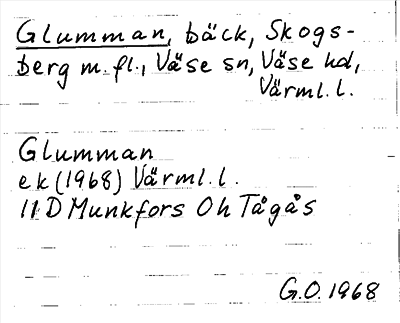 Glumman, bäck, Skogs-
berg m. fl., Väse sn, Väse hd,
Värml. l.
Glumman
ek (1968) Värml. l.
11 D Munkfors Oh Tågås
G.O. 1968